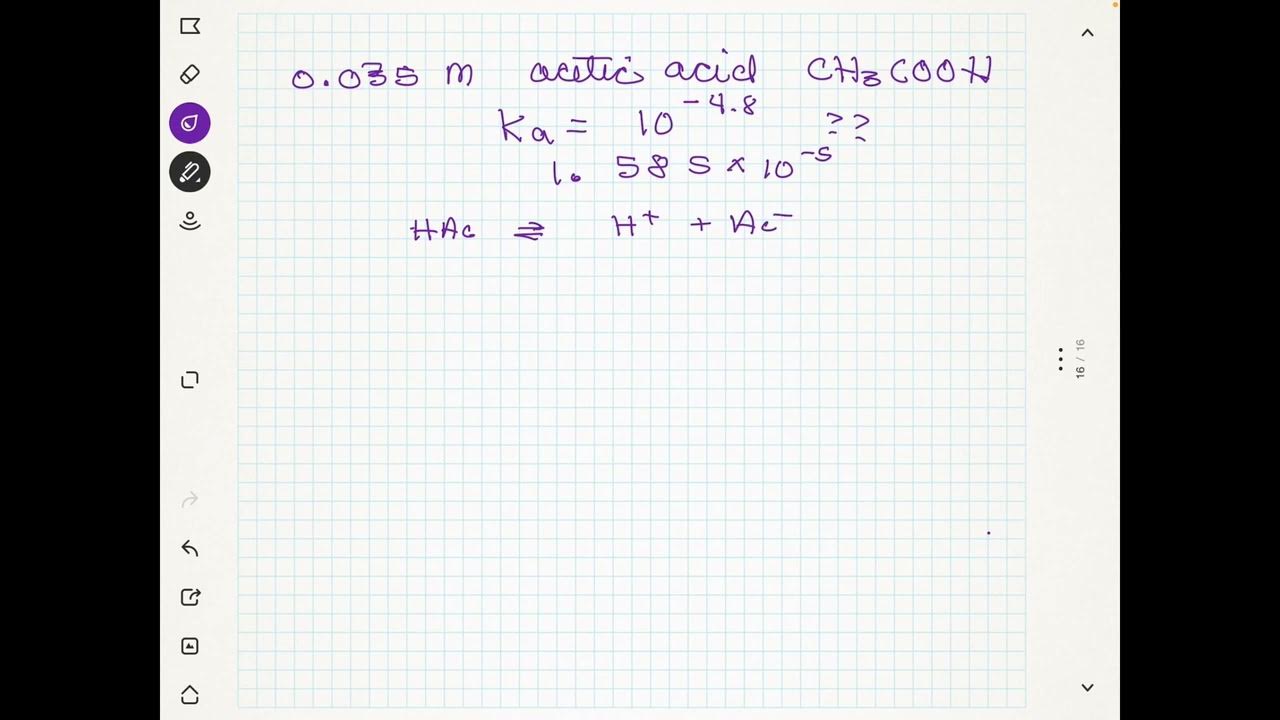 0.035 m acetic acid CH₃COOH
Ka = 10⁻⁴·⁸ ??
1.585 x 10⁻⁵
HAc ⇌ H⁺ + Ac⁻
16 / 16